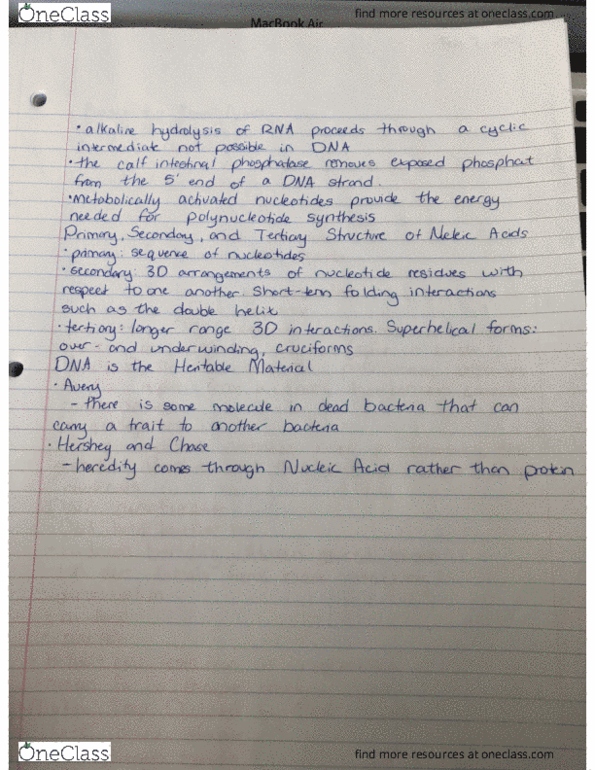 OneClass
find more resources at oneclass.com
MacBook Air
• alkaline hydrolysis of RNA proceeds through a cyclic
intermediate not possible in DNA
• the calf intestinal phosphatase removes exposed phosphat
from the 5' end of a DNA strand.
• metabolically activated nucleotides provide the energy
needed for polynucleotide synthesis
Primary, Secondary, and Tertiary Structure of Nucleic Acids
• primary: sequence of nucleotides
• secondary: 3D arrangements of nucleotide residues with
respect to one another. Short-term folding interactions
such as the double helix
• tertiary: longer range 3D interactions. Superhelical forms:
over- and underwinding, cruciforms
DNA is the Heritable Material
• Avery
- there is some molecule in dead bacteria that can
carry a trait to another bacteria
• Hershey and Chase
- heredity comes through Nucleic Acid rather than protein
OneClass
find more resources at oneclass.com